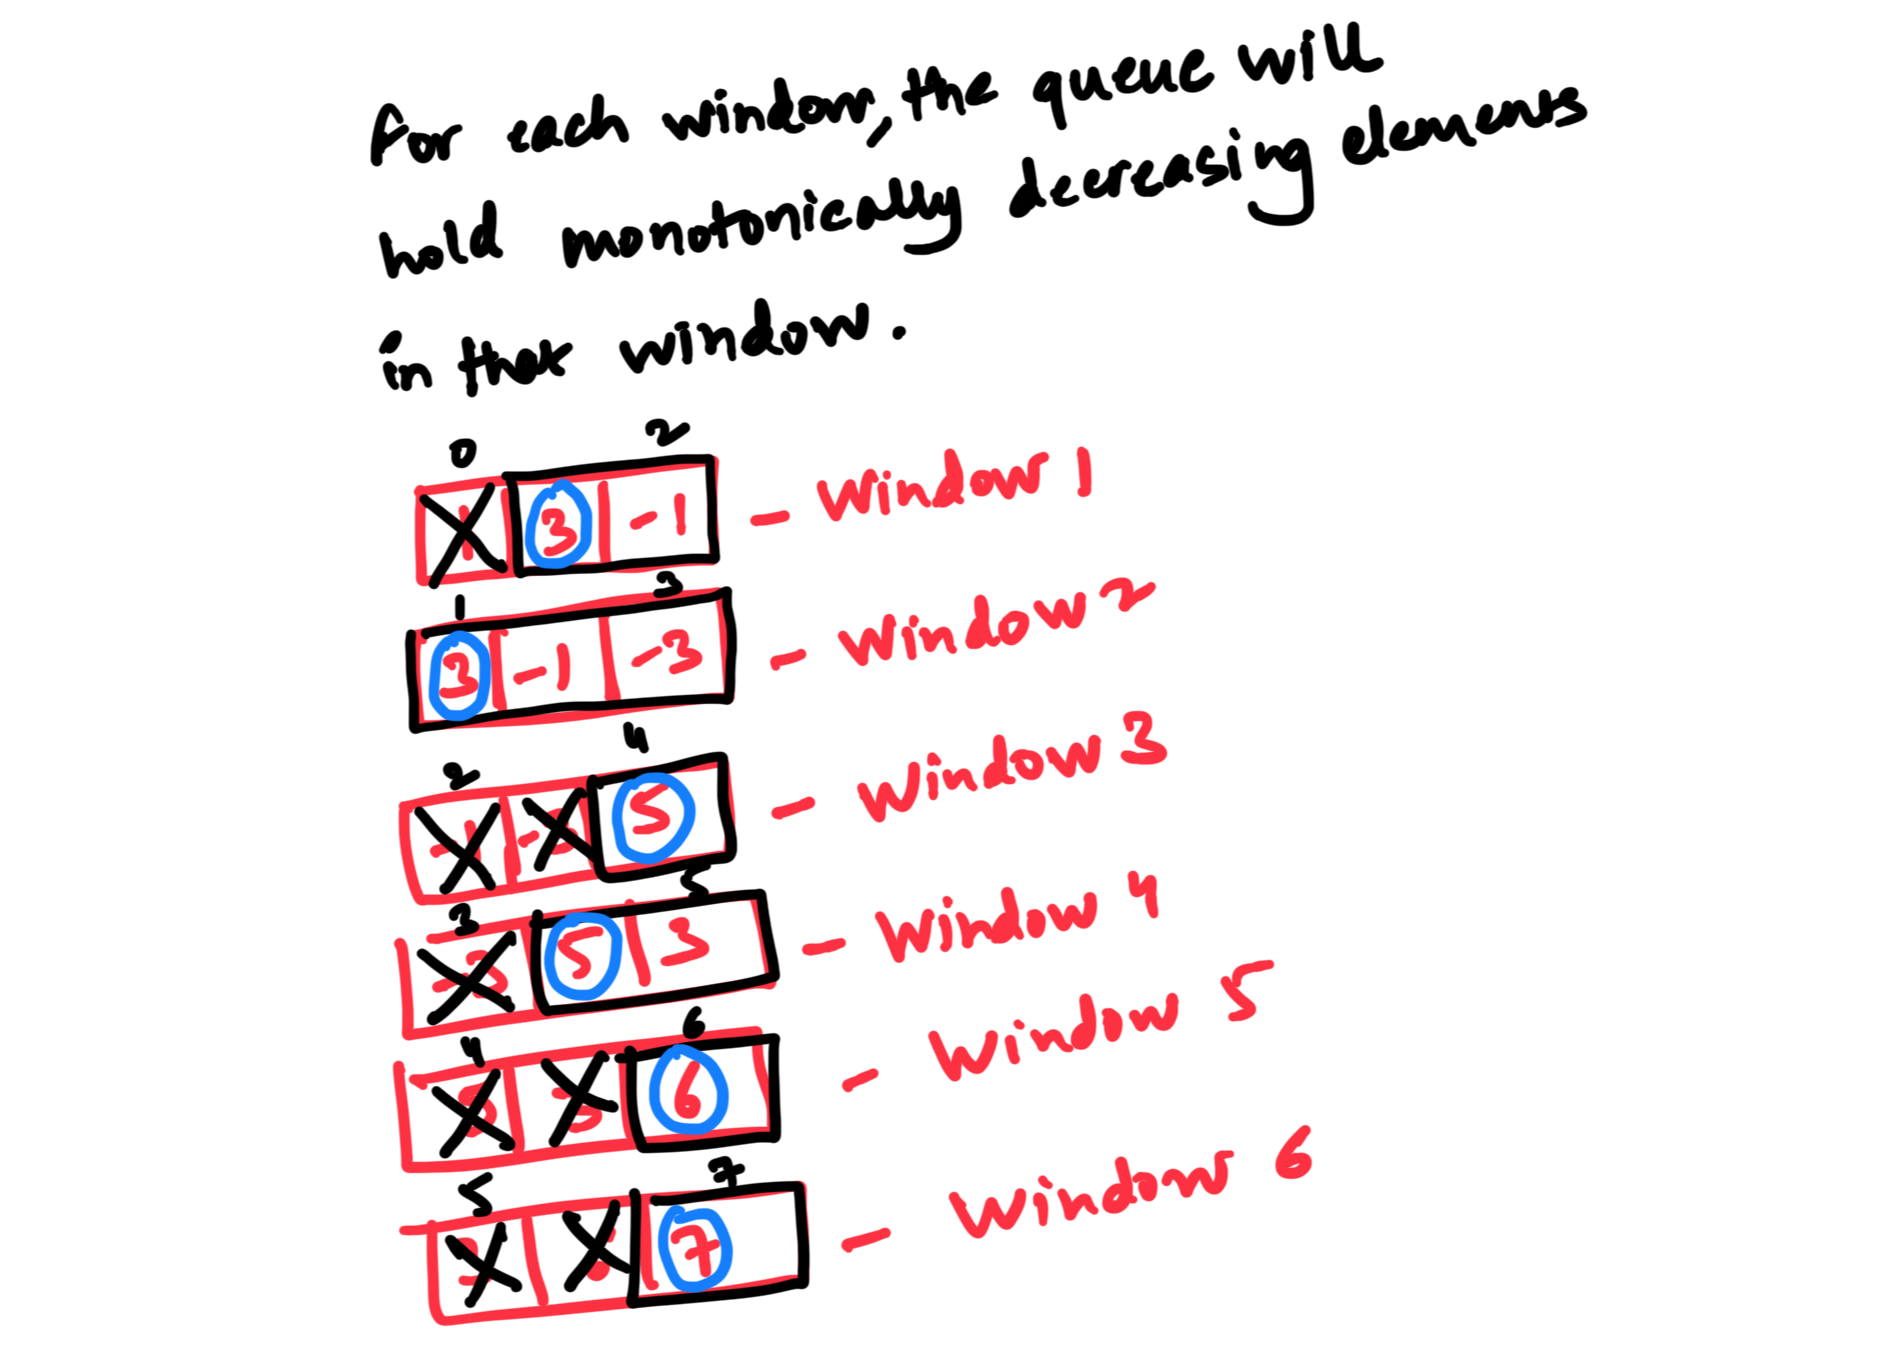 For each window, the queue will
hold monotonically decreasing elements
in that window.
0 2
1 3 -1 - Window 1
1 3
3 -1 -3 - Window 2
2 4
-1 -3 5 - Window 3
3 5
-3 5 3 - Window 4
4 6
5 3 6 - Window 5
5 7
3 7 - Window 6